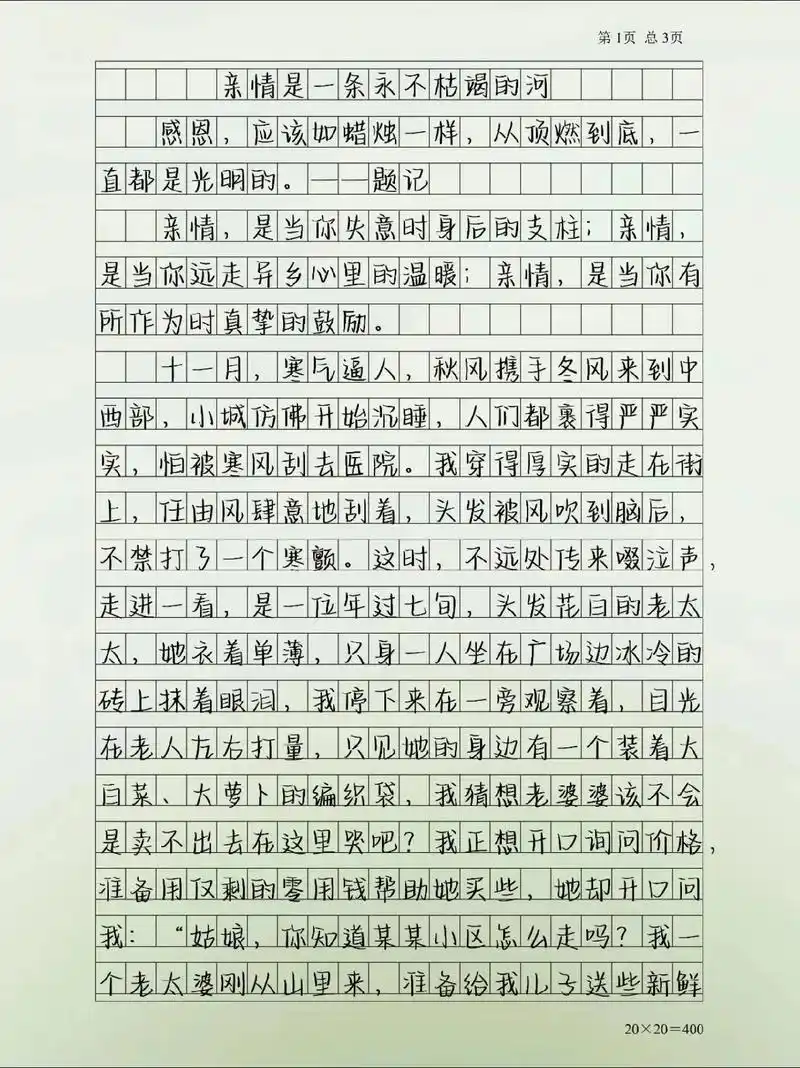 第1页 总3页
亲情是一条永不枯竭的河
感恩，应该如蜡烛一样，从顶燃到底，一
直都是光明的。——题记
亲情，是当你失意时身后的支柱；亲情，
是当你远走异乡心里的温暖；亲情，是当你有
所作为时真挚的鼓励。
十一月，寒气逼人，秋风携手冬风来到中
西部，小城仿佛开始沉睡，人们都裹得严严实
实，怕被寒风刮去医院。我穿得厚实的走在街
上，任由风肆意地刮着，头发被风吹到脑后，
不禁打了一个寒颤。这时，不远处传来啜泣声，
走进一看，是一位年过七旬，头发花白的老太
太，她衣着单薄，只身一人坐在广场边冰冷的
砖上抹着眼泪，我停下来在一旁观察着，目光
在老人左右打量，只见她的身边有一个装着大
白菜、大萝卜的编织袋，我猜想老婆婆该不会
是卖不出去在这里哭吧？我正想开口询问价格，
准备用仅剩的零用钱帮助她买些，她却开口问
我：“姑娘，你知道某某小区怎么走吗？我一
个老太婆刚从山里来，准备给我儿子送些新鲜
20×20=400